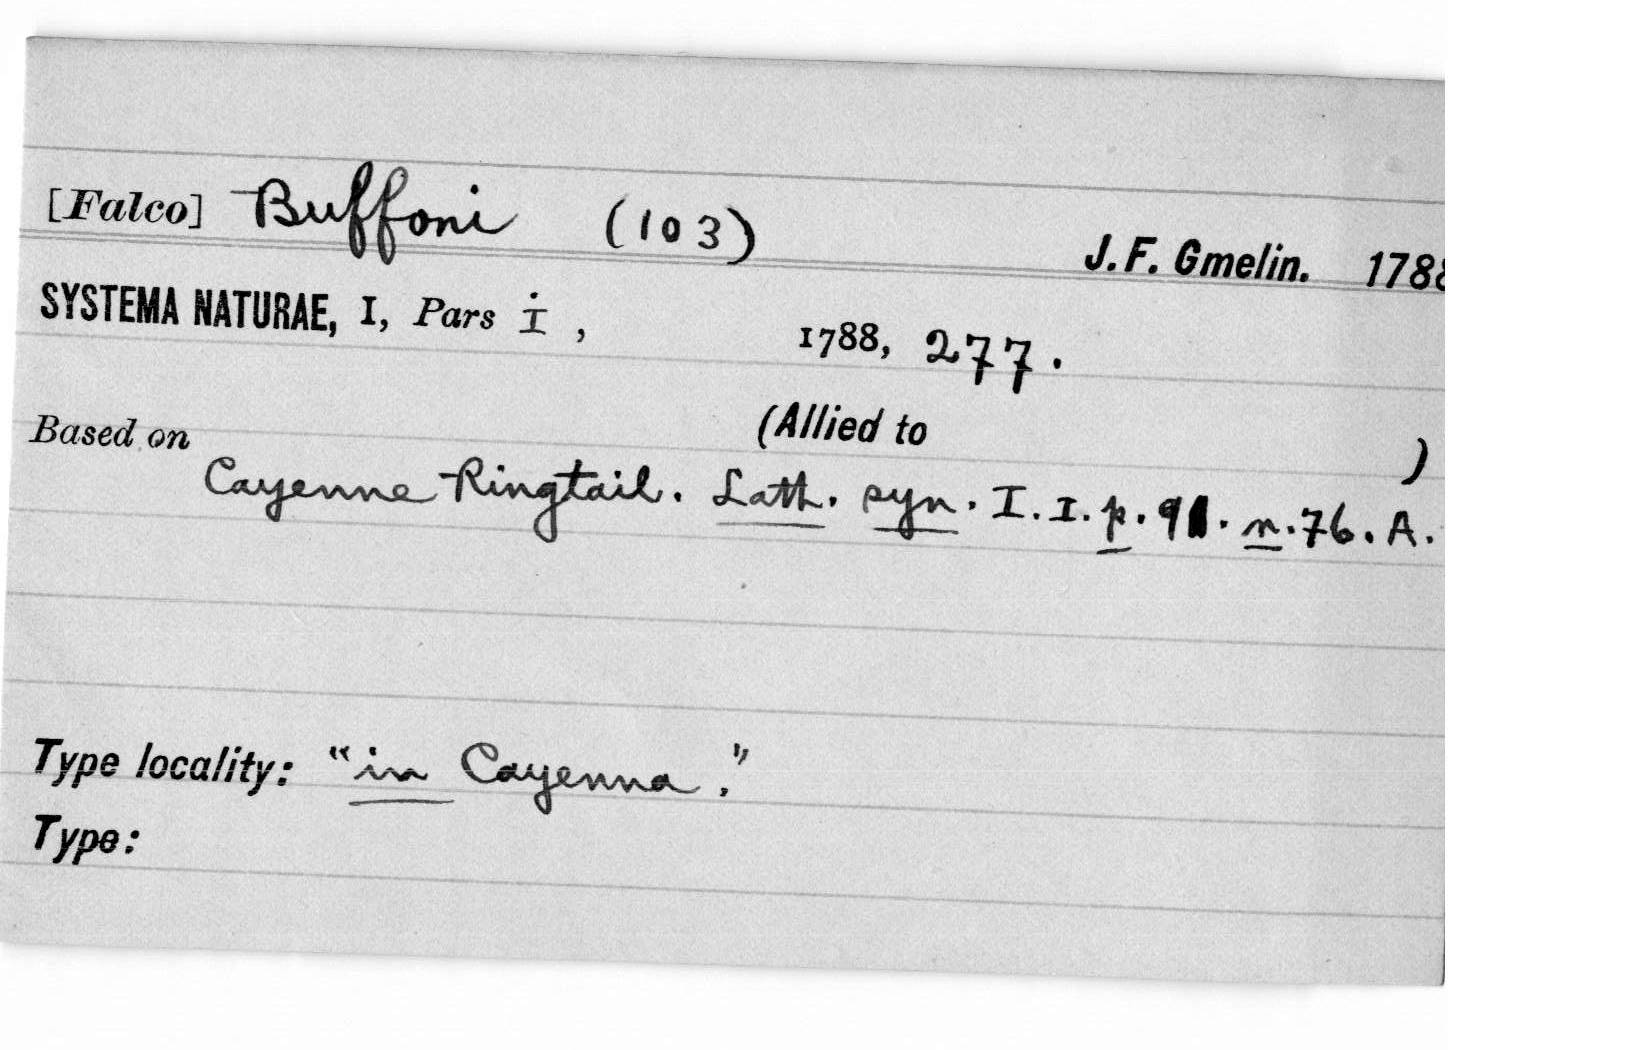 [Falco] Buffoni (103)
J. F. Gmelin. 1788
SYSTEMA NATURAE, I, Pars i, 1788, 277.
Based on (Allied to )
Cayenne Ringtail. Lath. syn. I. I. p. 91. n. 76. A.
Type locality: "in Cayenna."
Type: